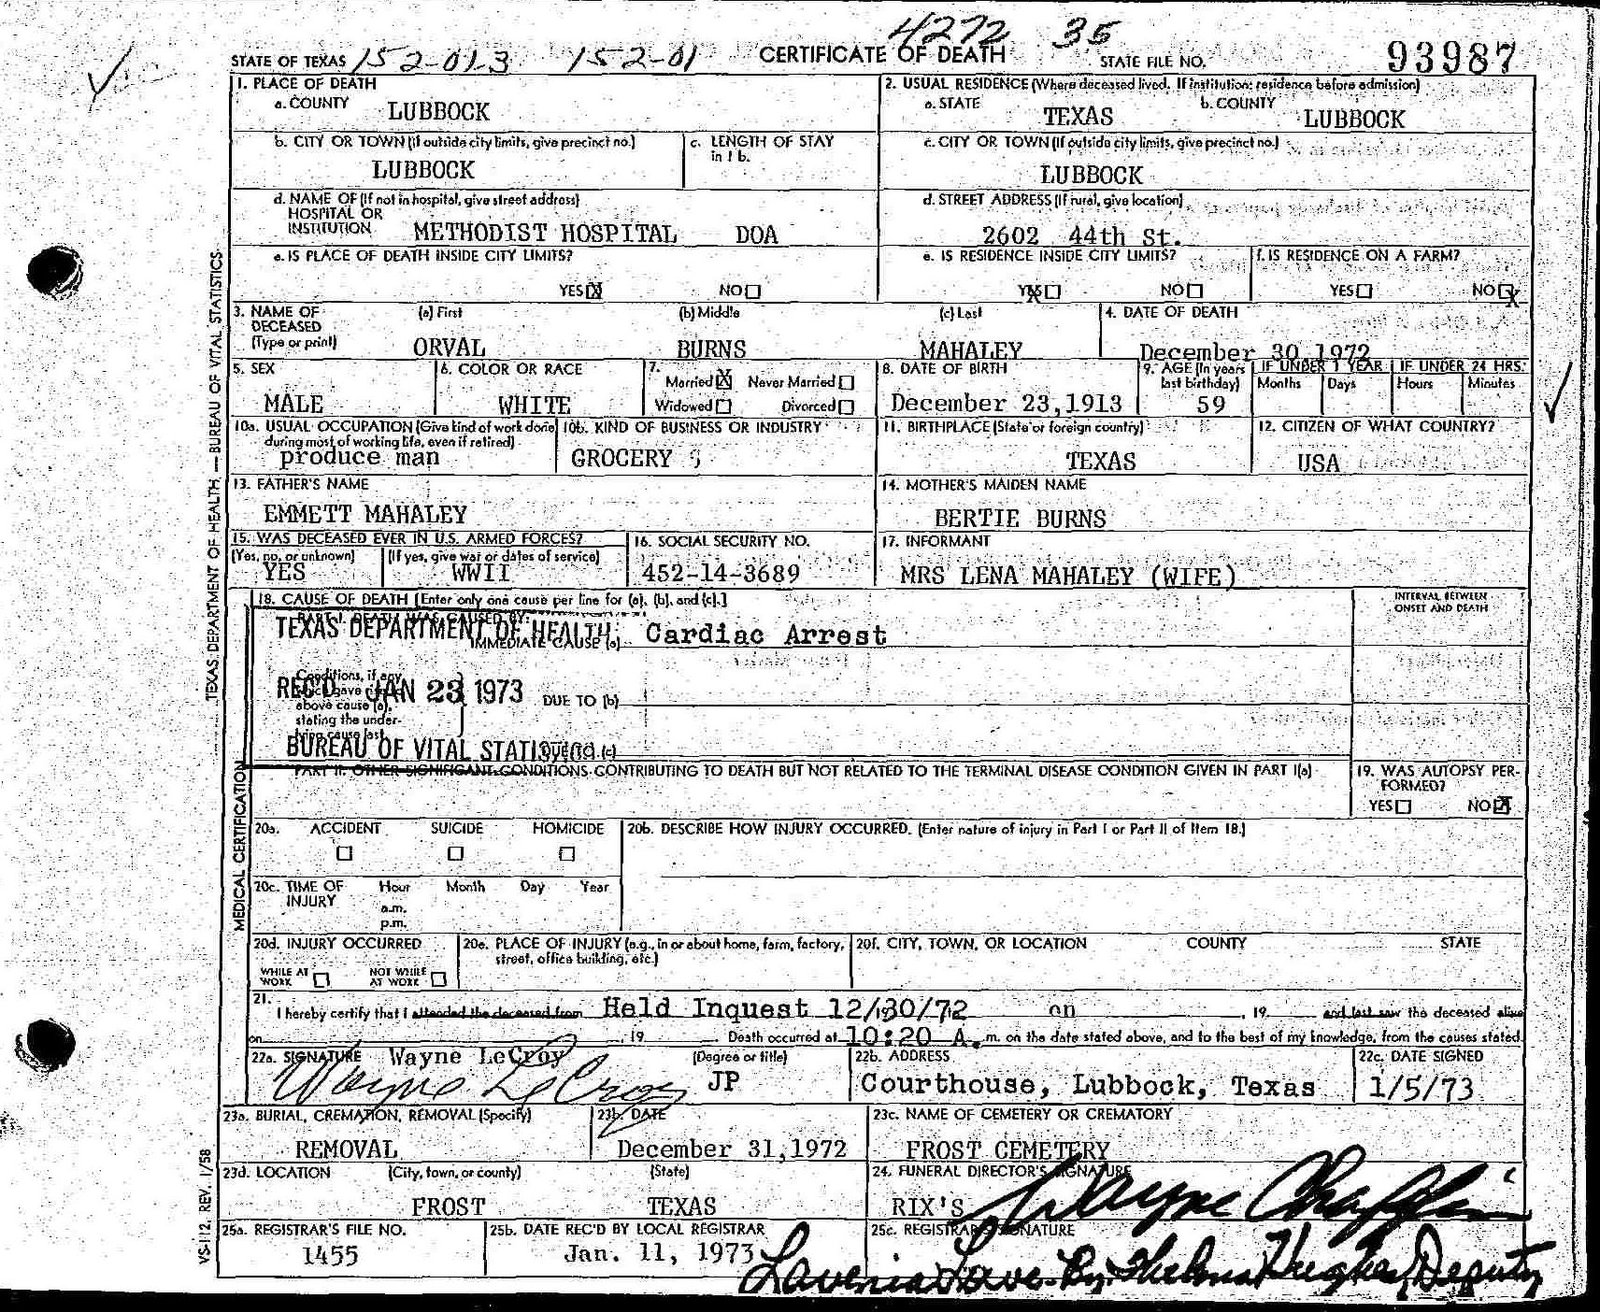 4272 35
STATE OF TEXAS 152-01-3 152-01 CERTIFICATE OF DEATH STATE FILE NO. 93987
1. PLACE OF DEATH
a. COUNTY LUBBOCK
2. USUAL RESIDENCE (Where deceased lived. If institution: residence before admission)
a. STATE TEXAS b. COUNTY LUBBOCK
b. CITY OR TOWN (If outside city limits, give precinct no.) LUBBOCK
c. LENGTH OF STAY in 1 b.
c. CITY OR TOWN (If outside city limits, give precinct no.) LUBBOCK
d. NAME OF (If not in hospital, give street address)
HOSPITAL OR
INSTITUTION METHODIST HOSPITAL DOA
d. STREET ADDRESS (If rural, give location)
2602 44th St.
e. IS PLACE OF DEATH INSIDE CITY LIMITS?
YES X NO
e. IS RESIDENCE INSIDE CITY LIMITS?
YES X NO
f. IS RESIDENCE ON A FARM?
YES NO X
3. NAME OF DECEASED (Type or print) (a) First (b) Middle (c) Last
ORVAL BURNS MAHALEY
4. DATE OF DEATH
December 30,1972
5. SEX
MALE
6. COLOR OR RACE
WHITE
7. Married X Never Married
Widowed Divorced
8. DATE OF BIRTH
December 23,1913
9. AGE (In years last birthday)
59
IF UNDER 1 YEAR IF UNDER 24 HRS.
Months Days Hours Minutes
10a. USUAL OCCUPATION (Give kind of work done during most of working life, even if retired)
produce man
10b. KIND OF BUSINESS OR INDUSTRY
GROCERY
11. BIRTHPLACE (State or foreign country)
TEXAS
12. CITIZEN OF WHAT COUNTRY?
USA
13. FATHER'S NAME
EMMETT MAHALEY
14. MOTHER'S MAIDEN NAME
BERTIE BURNS
15. WAS DECEASED EVER IN U.S. ARMED FORCES?
(Yes, no, or unknown) (If yes, give war or dates of service)
YES WWII
16. SOCIAL SECURITY NO.
452-14-3689
17. INFORMANT
MRS LENA MAHALEY (WIFE)
18. CAUSE OF DEATH [Enter only one cause per line for (a), (b), and (c).]
INTERVAL BETWEEN
ONSET AND DEATH
PART I. DEATH WAS CAUSED BY:
IMMEDIATE CAUSE (a) Cardiac Arrest
TEXAS DEPARTMENT OF HEALTH
REC'D JAN 23 1973
BUREAU OF VITAL STATISTICS
Conditions, if any,
which gave rise to
above cause (a),
stating the under-
lying cause last.
DUE TO (b)
DUE TO (c)
PART II. OTHER SIGNIFICANT CONDITIONS CONTRIBUTING TO DEATH BUT NOT RELATED TO THE TERMINAL DISEASE CONDITION GIVEN IN PART I(a)
19. WAS AUTOPSY PER-
FORMED?
YES NO X
20a. ACCIDENT SUICIDE HOMICIDE
20b. DESCRIBE HOW INJURY OCCURRED. (Enter nature of injury in Part I or Part II of Item 18.)
20c. TIME OF INJURY Hour Month Day Year
a.m.
p.m.
20d. INJURY OCCURRED
WHILE AT WORK NOT WHILE AT WORK
20e. PLACE OF INJURY (e.g., in or about home, farm, factory, street, office building, etc.)
20f. CITY, TOWN, OR LOCATION COUNTY STATE
21.
I hereby certify that I attended the deceased from Held Inquest 12/30/72 on , 19 and last saw the deceased alive
on , 19 . Death occurred at 10:20 A. m. on the date stated above, and to the best of my knowledge, from the causes stated.
22a. SIGNATURE Wayne LeCroy (Degree or title)
Wayne LeCroy JP
22b. ADDRESS
Courthouse, Lubbock, Texas
22c. DATE SIGNED
1/5/73
23a. BURIAL, CREMATION, REMOVAL (Specify)
REMOVAL
23b. DATE
December 31,1972
23c. NAME OF CEMETERY OR CREMATORY
FROST CEMETERY
23d. LOCATION (City, town, or county) (State)
FROST TEXAS
24. FUNERAL DIRECTOR'S SIGNATURE
RIX'S Wayne Chaffin
25a. REGISTRAR'S FILE NO.
1455
25b. DATE REC'D BY LOCAL REGISTRAR
Jan. 11, 1973
25c. REGISTRAR'S SIGNATURE
Lavenia Lowe By Thelma Hughes, Deputy
TEXAS DEPARTMENT OF HEALTH — BUREAU OF VITAL STATISTICS
MEDICAL CERTIFICATION
VS-112 REV. 1/58